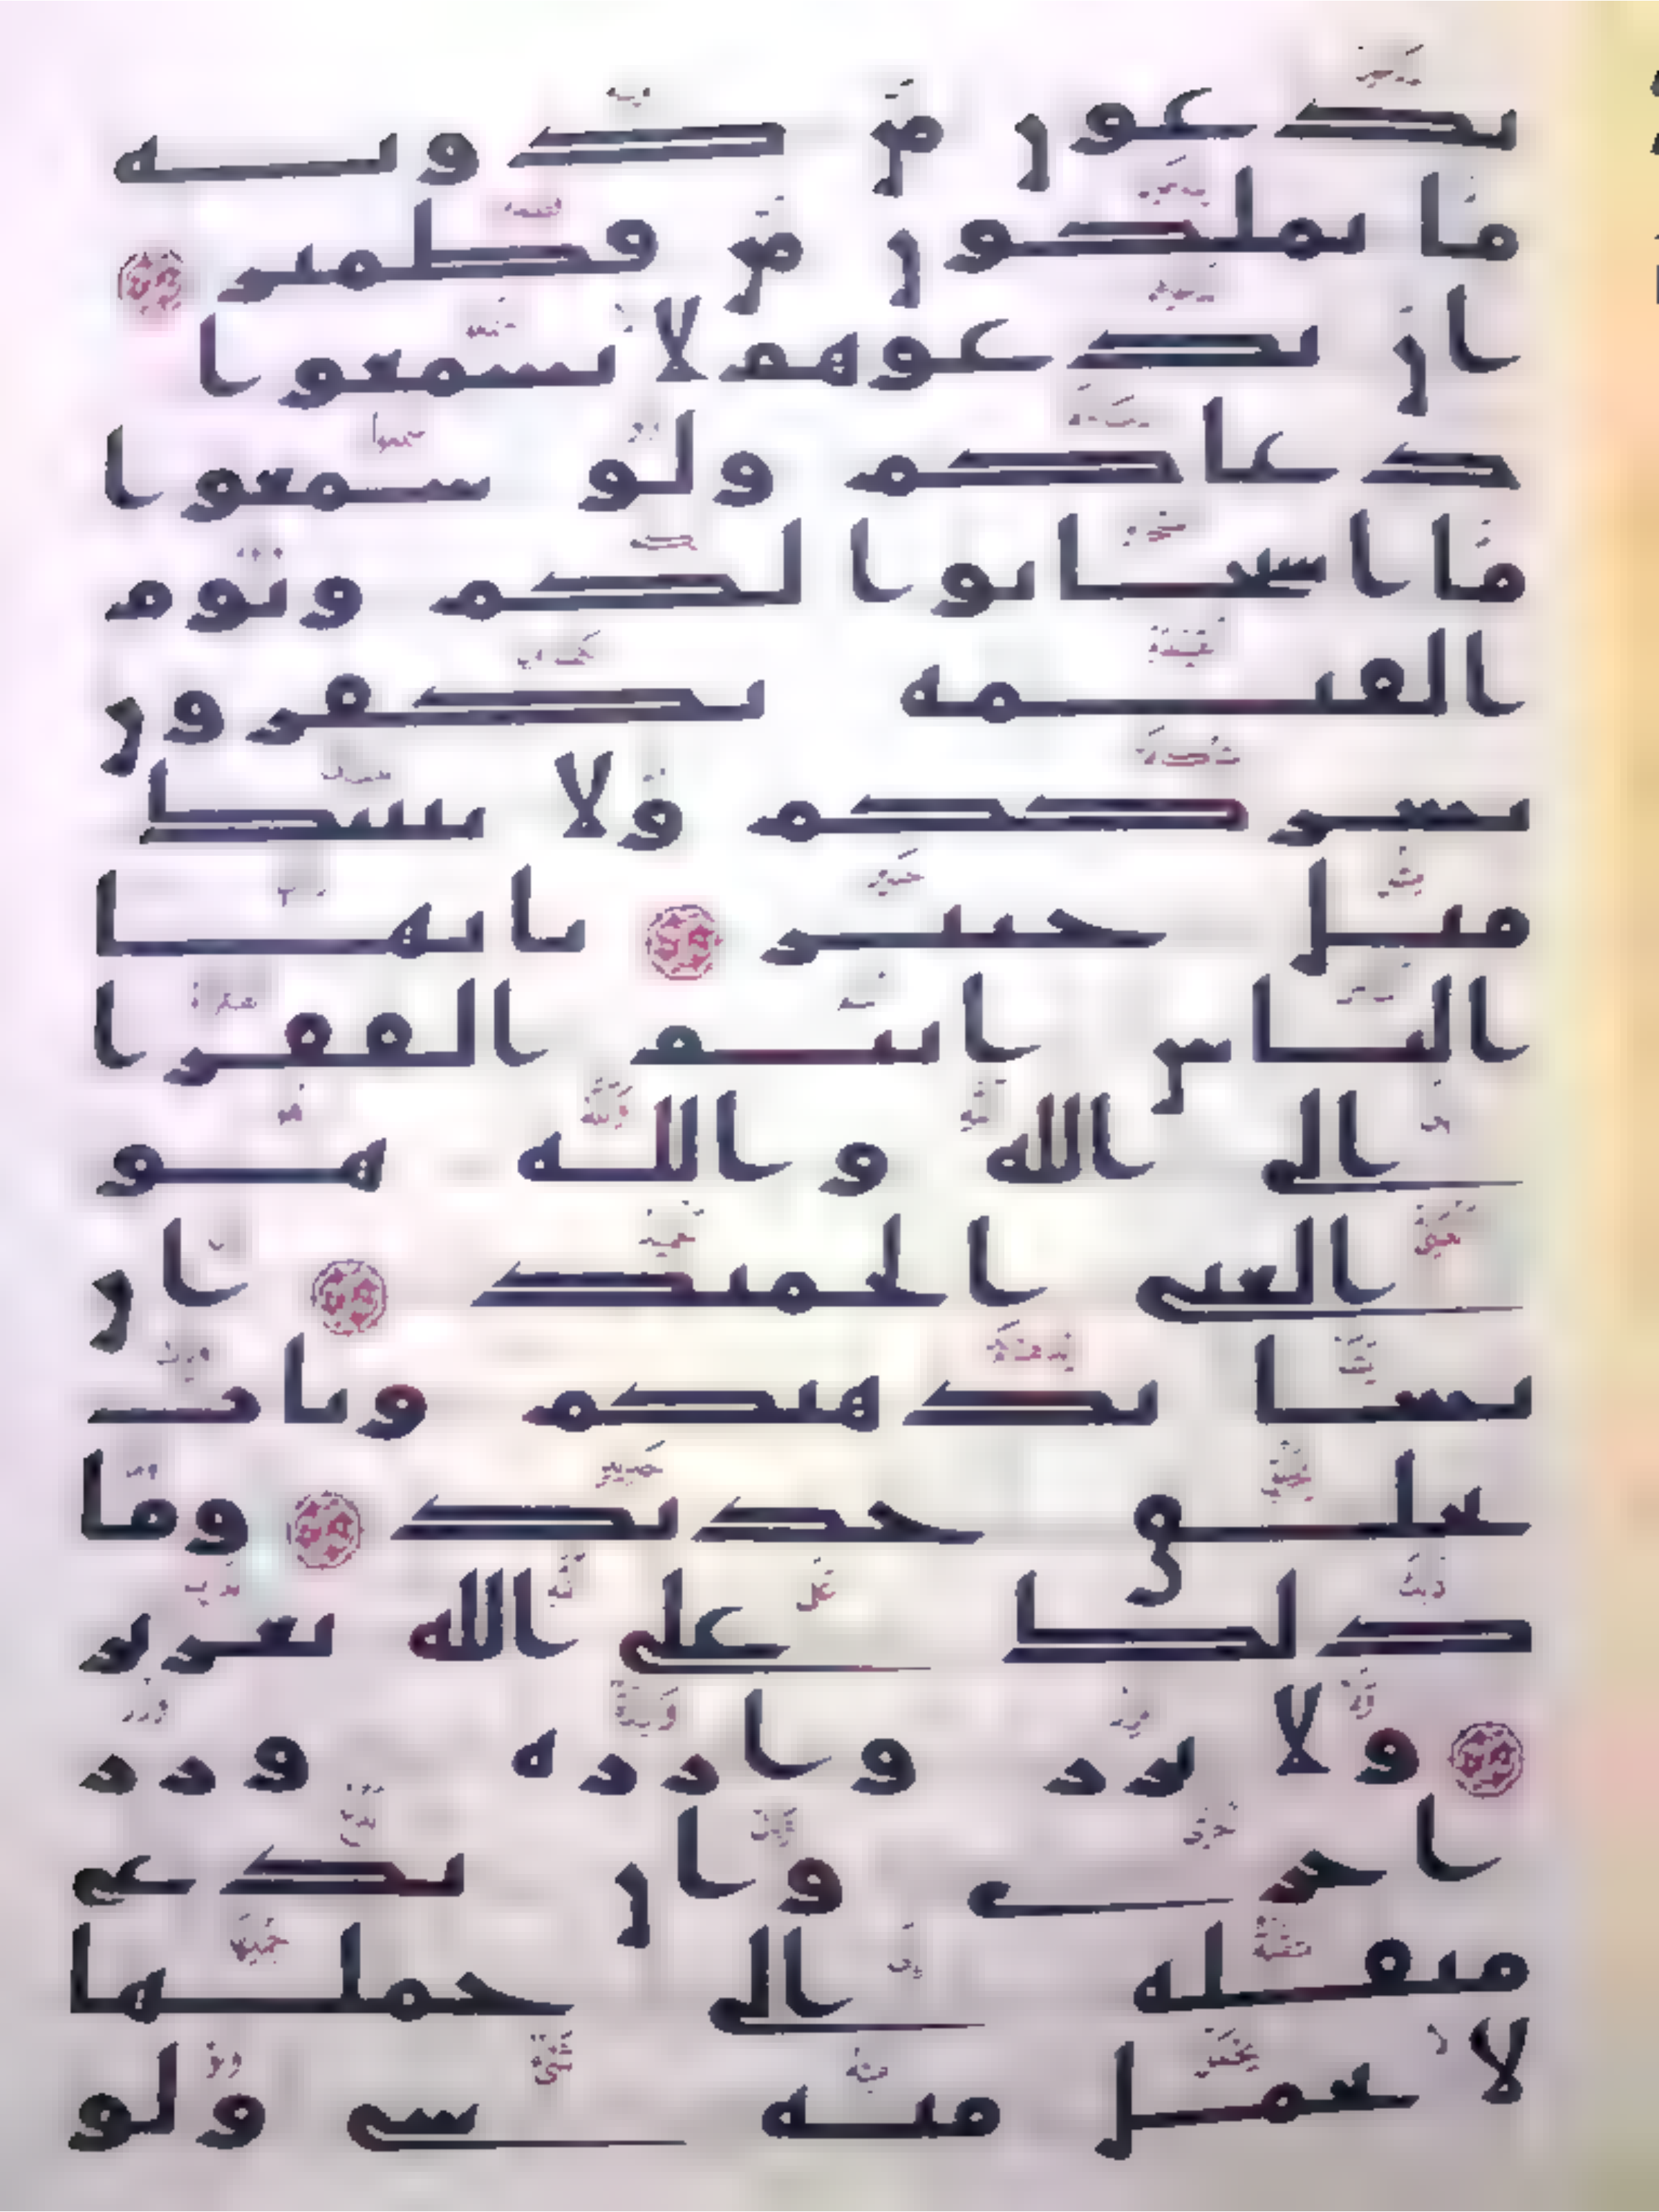 تدعون من دونه
ما يملكون من قطمير
ان تدعوهم لا يسمعوا
دعاكم ولو سمعوا
ما استجابوا لكم ويوم
القيمة يكفرون
بشرككم ولا ينبئك
مثل خبير يايها
الناس انتم الفقرا
الى الله والله هو
الغنى الحميد ان
يشا يذهبكم ويات
بخلق جديد وما
ذلك على الله بعزيز
ولا تزر وازرة وزر
اخرى وان تدع
مثقلة الى حملها
لا يحمل منه شى ولو